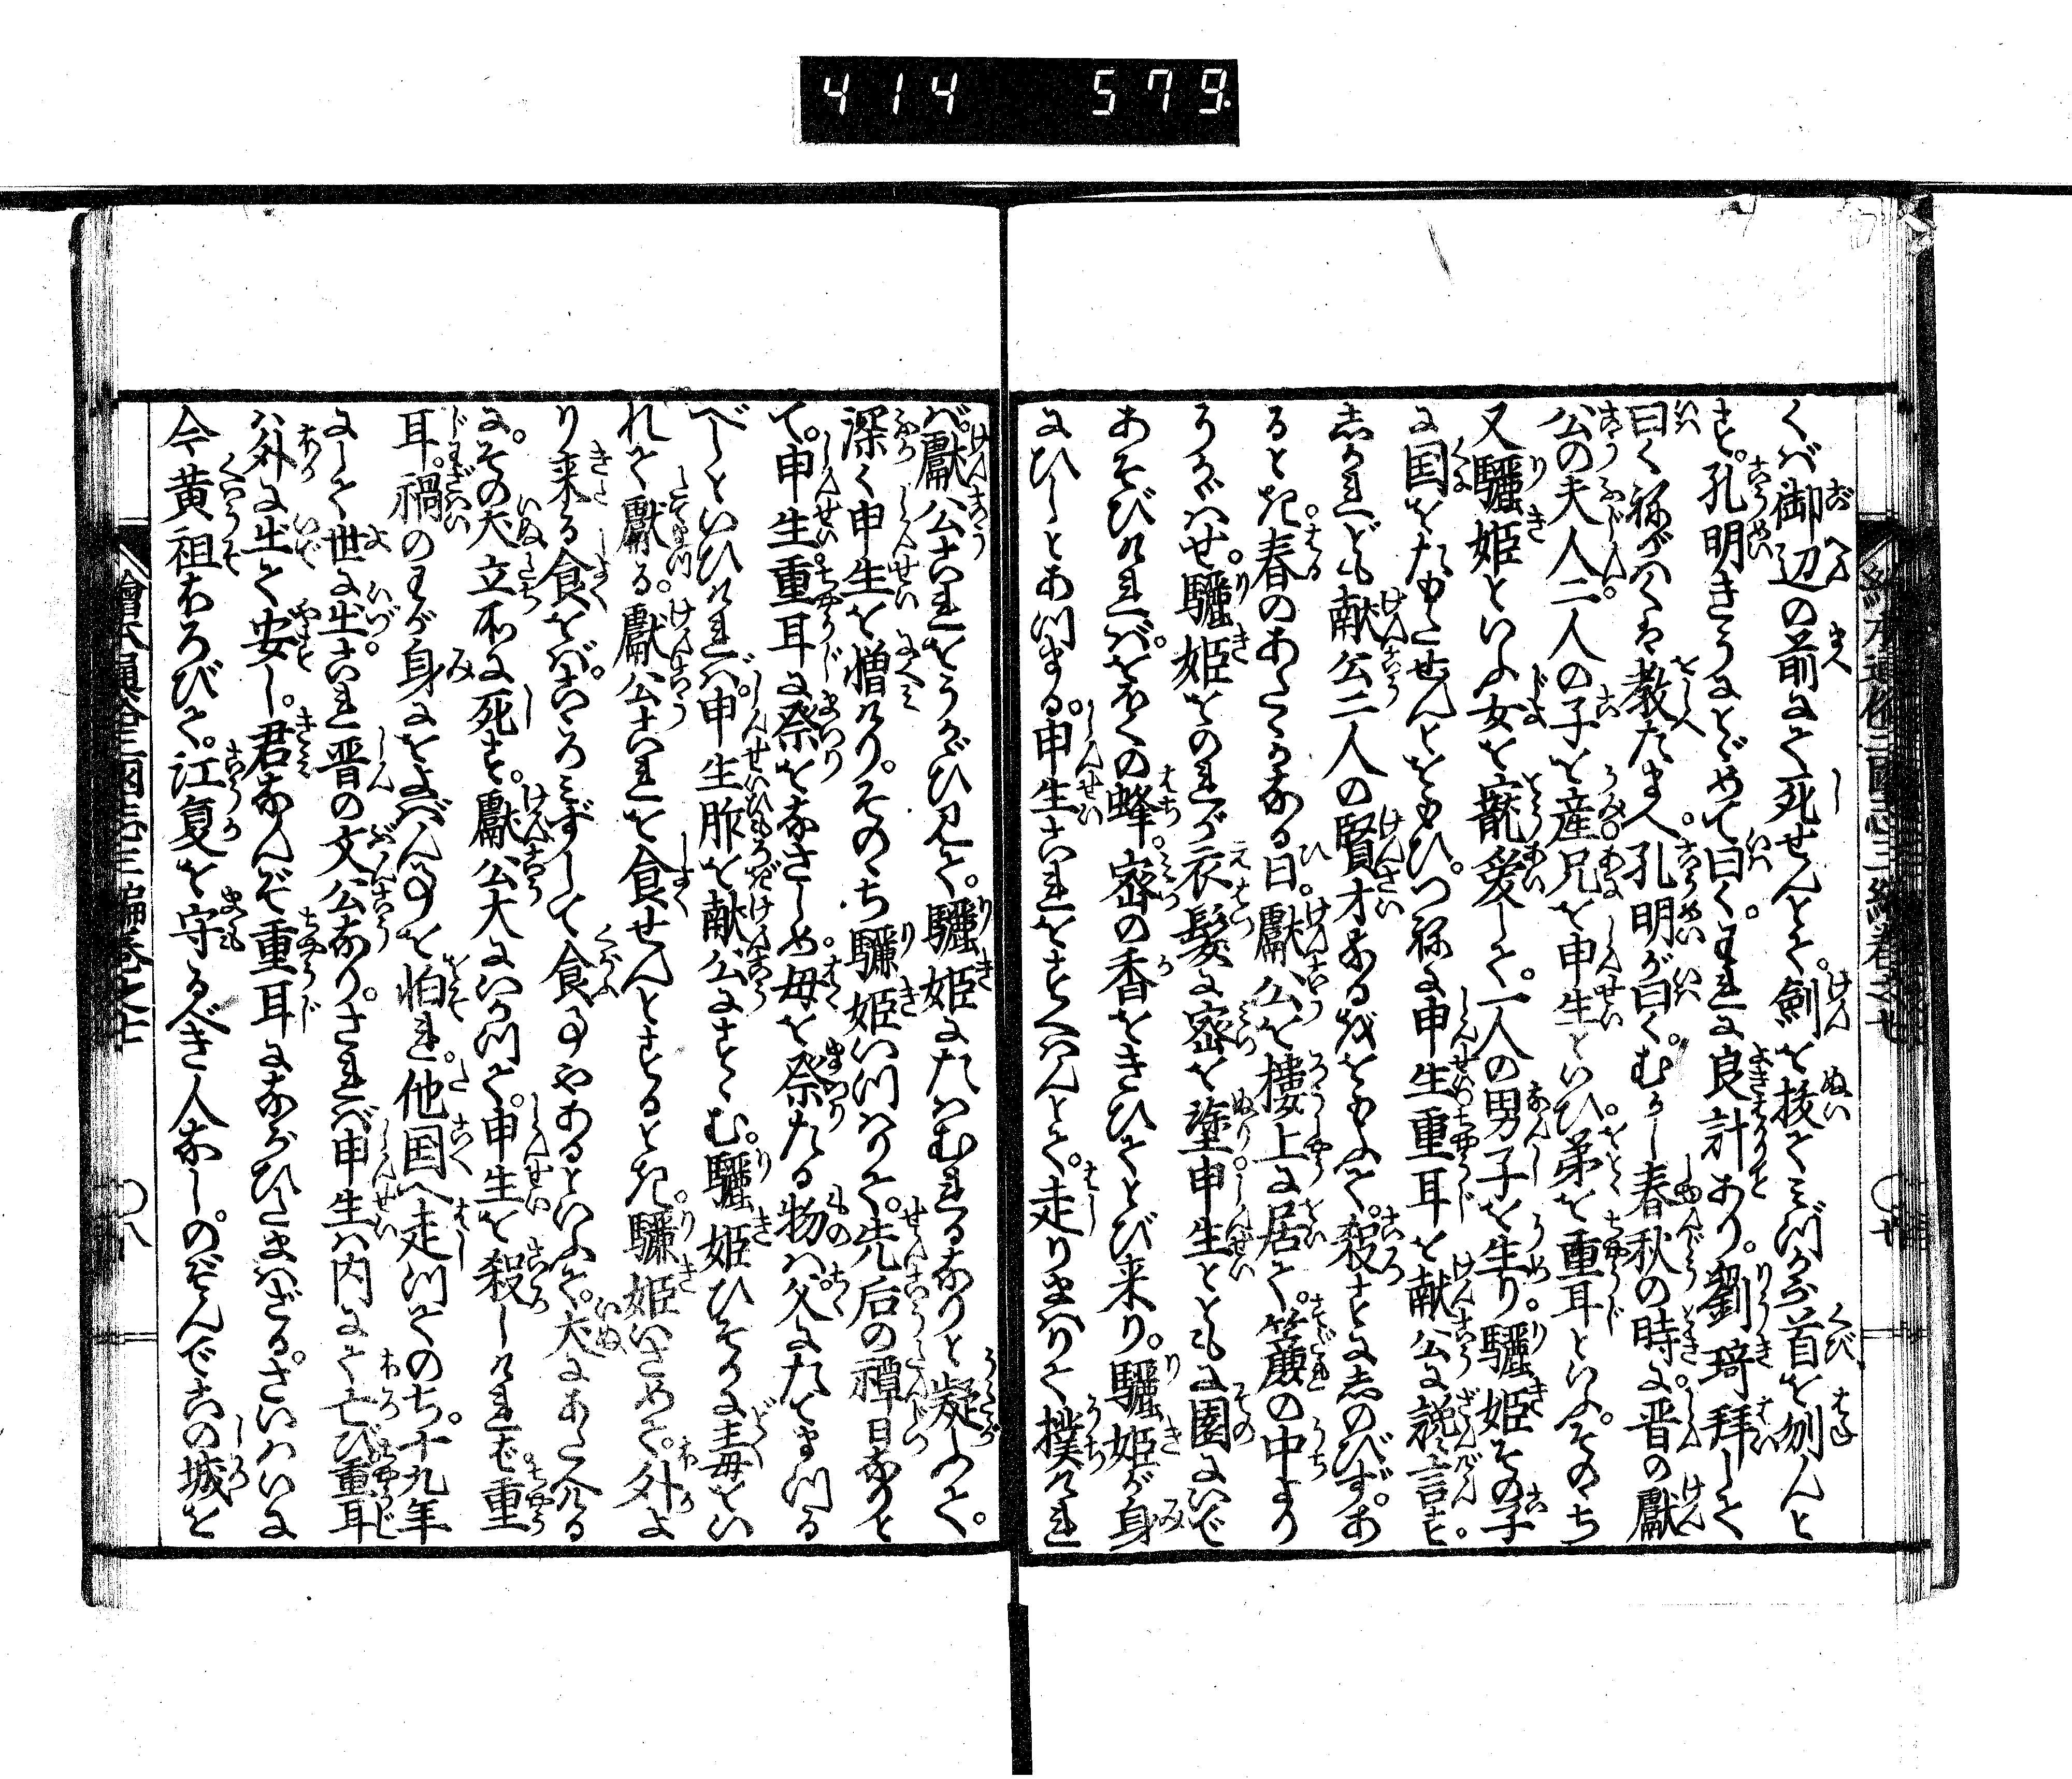 414 579
くバ御辺の前にて死せんとて。剣を抜てミづから首を刎んと
す。孔明きうにとゞめて曰く。われに良計あり。劉琦拝して
曰く。ねがハくは教たまへ。孔明が曰く。むかし春秋の時に。晋の獻
公の夫人二人の子を産。兄を申生といひ。弟を重耳といふ。そのち
又驪姫といふ女を寵愛して。一人の男子を生り。驪姫その子
に国をたもたせんとをもひ。つねに申生重耳を献公に讒言す。
しかれども献公二人の賢才なるをおもふて。殺すに志のびず。あ
るとき。春のあたゝかなる日。獻公を樓上に居て。簾の中より
うかゞハせ。驪姫をのれが衣髮に蜜を塗。申生とともに園にいで
あそびけれバ。をほくの蜂。蜜の香をきひてとび来り。驪姫が身
にひしとあつまる。申生これをすくハんとて。走りまハりて撲けれ
バ。獻公これをうかゞひ見て。驪姫にたハむれるなりと疑ふて。
深く申生を憎けり。そのゝち驪姫いつハりて。先后の禫日なりと
て。申生重耳に祭をなさしめ。母を祭たる物ハ。父にたてまつる
べしといひけれバ。申生胙を献公にすゝむ。驪姫ひそかに毒をい
れて獻る。獻公これを食せんとするとき。驪姫いさめて。外よ
り来る食をバ。こゝろミずして食事やあるといふて。犬にあたへる
に。その犬立所に死す。獻公大にいかつて。申生を殺しけれバ。重
耳。禍のわが身にをよバん事を怕れ。他国へ走つてのち。十九年
にして世に出。これ晋の文公なり。されバ申生ハ内にて亡び重耳
ハ外に出て安し。君なんぞ重耳にならひたまハざる。さいハいに
今黄祖ほろびて。江夏を守るべき人なし。のぞんでこの城を